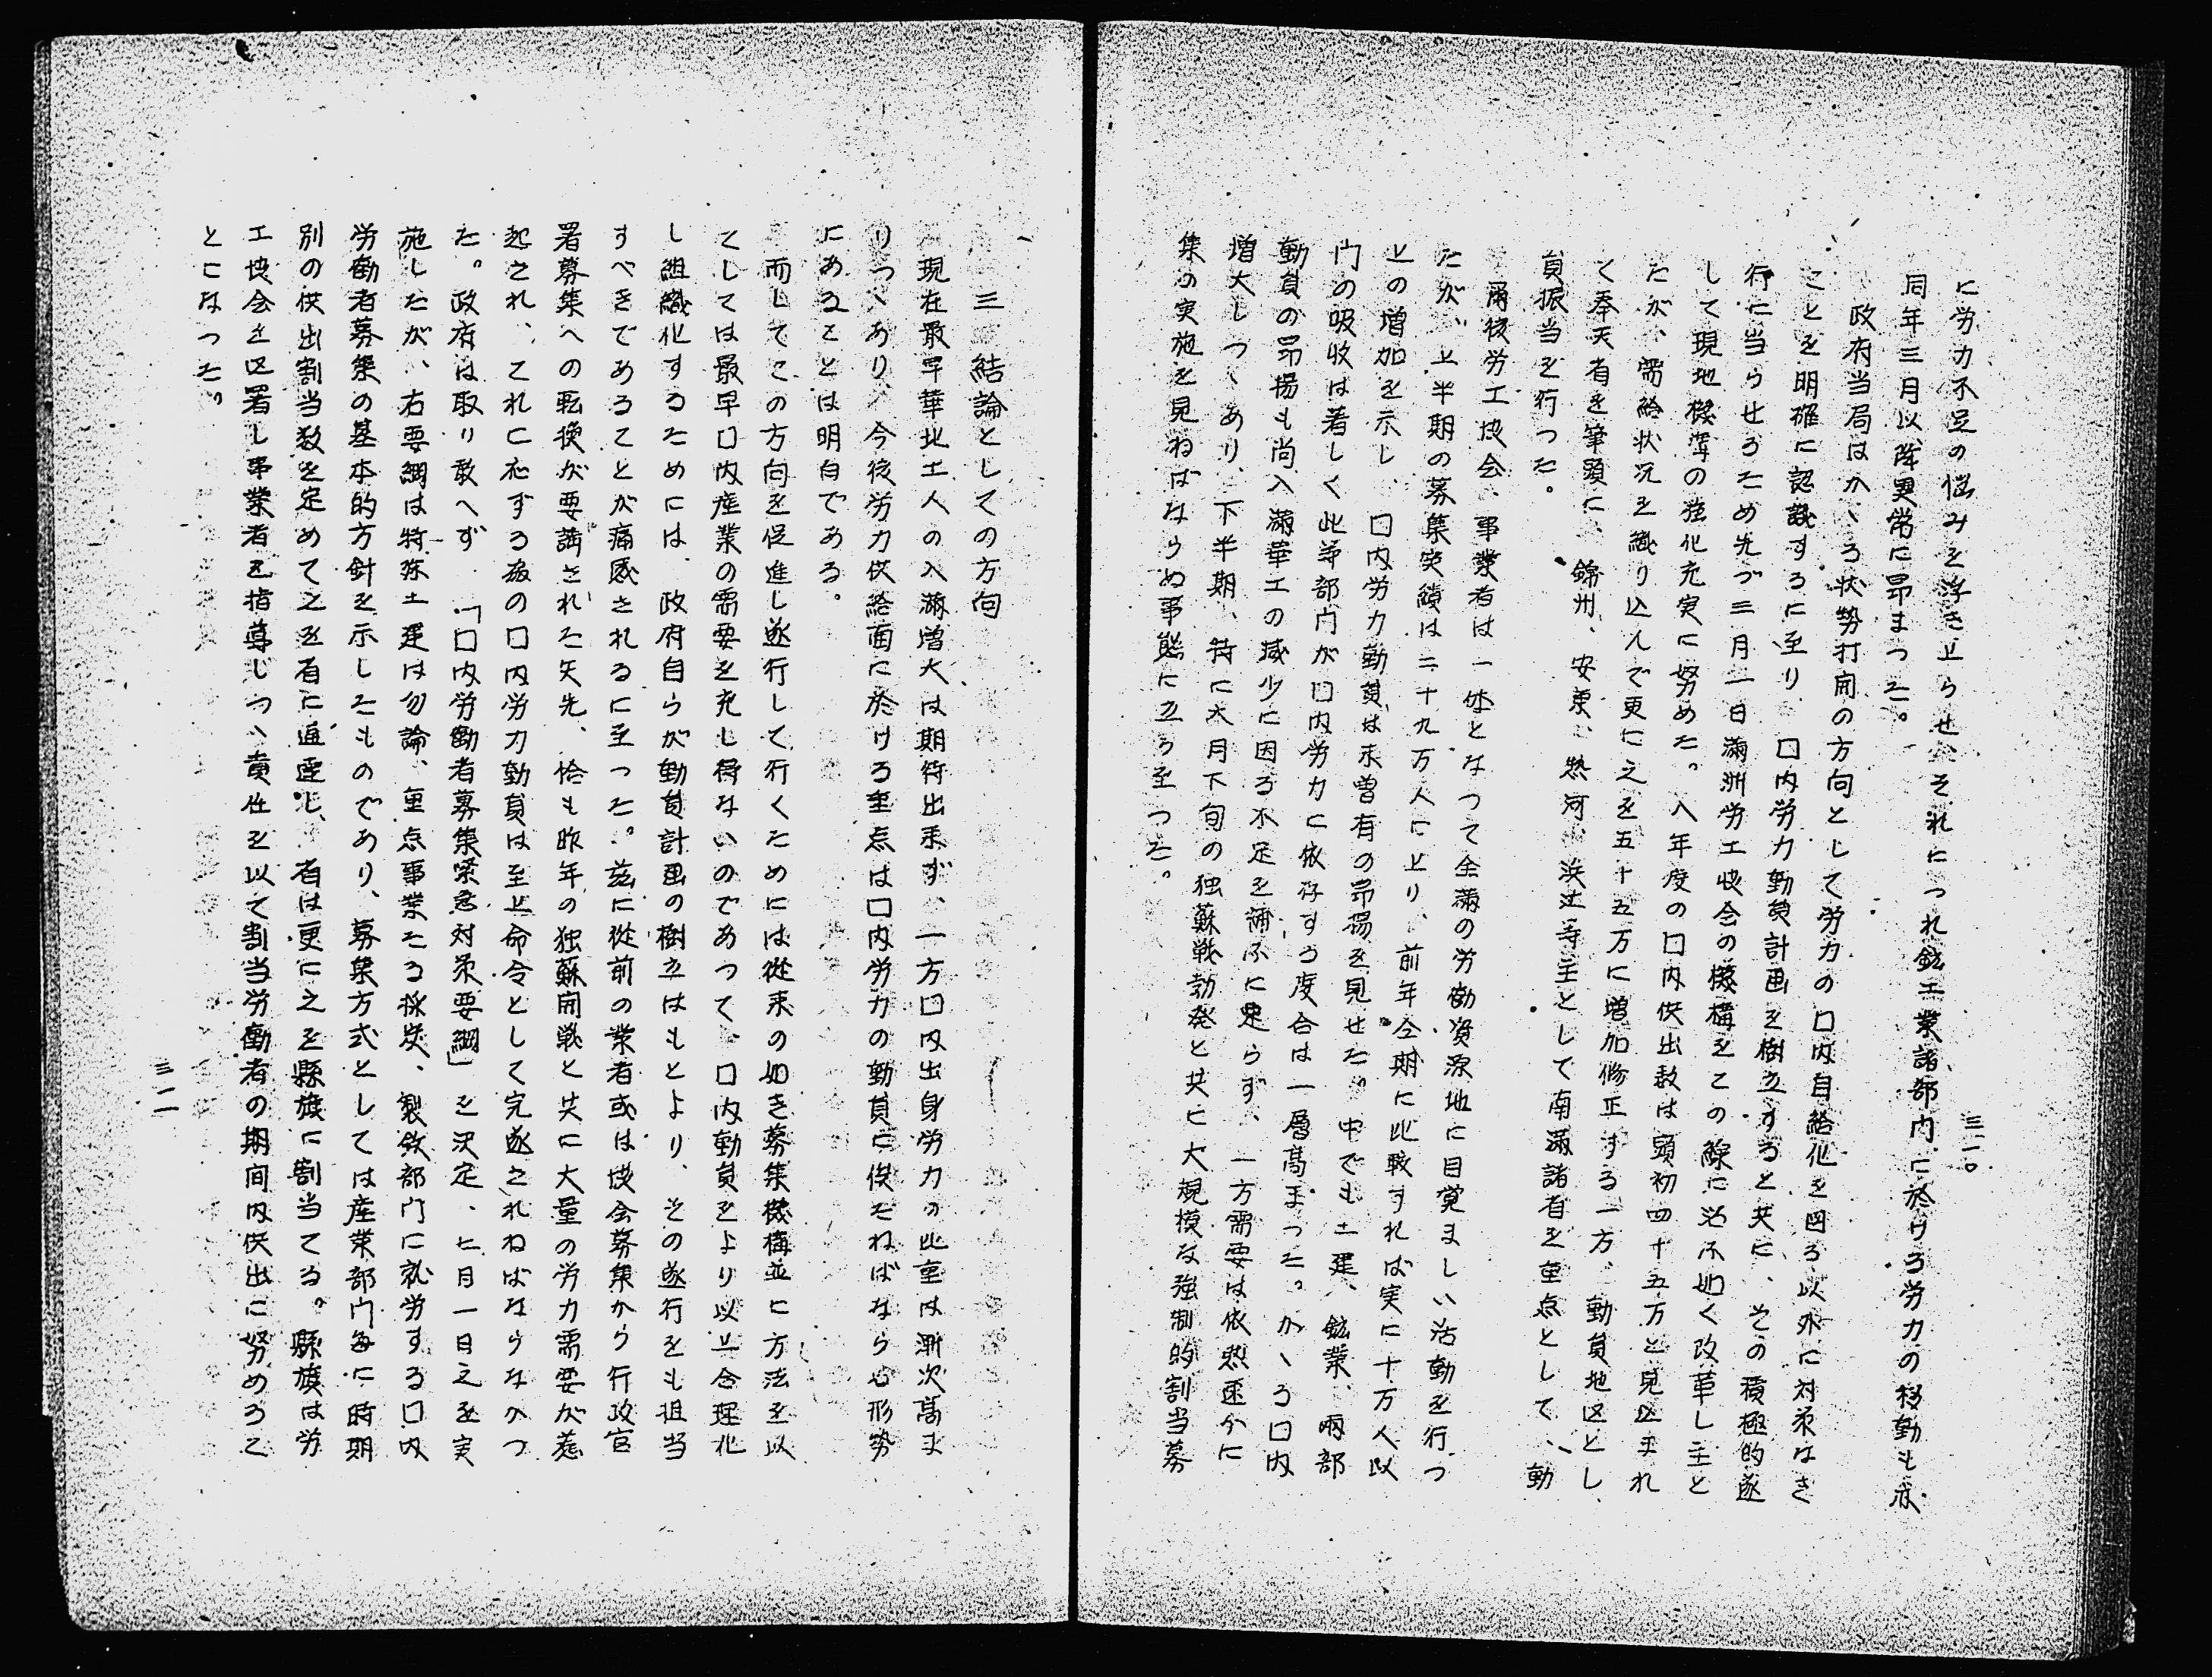 三一〇
に労力不足の悩みを浮き上らせ、それにつれ鉱工業諸部内に於ける労力の移動も亦
同年三月以降異常に昂まつた。
政府当局はかゝる状勢打開の方向として労力の口内自給化を図る以外に対策なき
ことを明確に認識するに至り、口内労力動員計画を樹立すると共に、その積極的遂
行に当らせるため先づ三月一日満洲労工協会の機構をこの線に沿ふ如く改革し主と
して現地機構の強化充実に努めた。八年度の口内供出数は頭初四十五万と見込まれ
たが、需給状況を織り込んで更に之を五十五万に増加修正する一方、動員地区とし
て奉天省を筆頭に、錦州、安東、熱河、浜江等主として南満諸省を重点として、動
員振当を行つた。
爾後労工協会、事業者は一体となつて全満の労働資源地に目覚ましい活動を行つ
たが、上半期の募集実績は二十九万人に上り、前年全期に比較すれば実に十万人以
上の増加を示し、口内労力動員は未曽有の昂揚を見せた。中でも土建、鉱業、両部
門の吸收は著しく此等部内が口内労力に依存する度合は一層高まつた。かゝる口内
動員の昂揚も尚入満華工の減少に因る不足を補ふに足らず、一方需要は依然逐次に
増大しつゝあり、下半期、特に六月下旬の独蘇戦勃発と共に大規模な強制的割当募
集の実施を見ねばならぬ事態に立ち至つた。
三　結論としての方向
現在最早華北工人の入満増大は期待出来ず、一方口内出身労力の比重は漸次高ま
りつゝあり、今後労力供給面に於ける重点は口内労力の動員に俟たねばならぬ形勢
にあることは明白である。
而してこの方向を促進し遂行して行くためには從来の如き募集機構並に方法を以
てしては最早口内産業の需要を充し得ないのであつて、口内動員をより以上合理化
し組織化するためには、政府自らが動員計画の樹立はもとより、その遂行をも担当
すべきであることが痛感されるに至つた。茲に從前の業者或は協会募集から行政官
署募集への転換が要請された矢先、恰も昨年の独蘇開戦と共に大量の労力需要が惹
起され、これに応ずる為の口内労力動員は至上命令として完遂されねばならなかつ
た。政府は取り敢へず「口内労働者募集緊急対策要綱」を決定、七月一日之を実
施したが、右要綱は特殊土建は勿論、重点事業たる採炭、製鉄部門に就労する口内
労働者募集の基本的方針を示したものであり、募集方式としては産業部門毎に時期
別の供出割当数を定めて之を省に通達し、省は更に之を縣旗に割当てる。縣旗は労
工協会を区署し事業者を指導しつゝ責任を以て割当労働者の期間内供出に努めるこ
とになつた。
三一一